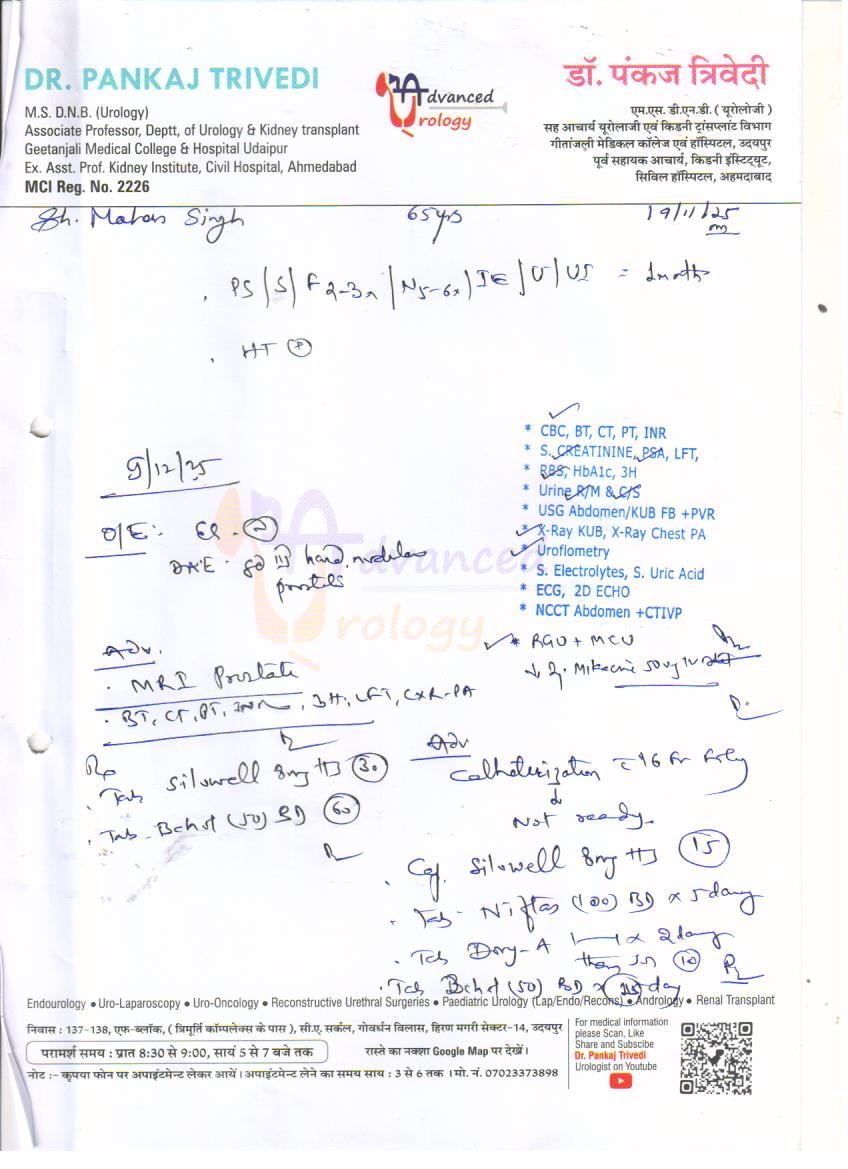 DR. PANKAJ TRIVEDI
M.S. D.N.B. (Urology)
Associate Professor, Deptt, of Urology & Kidney transplant
Geetanjali Medical College & Hospital Udaipur
Ex. Asst. Prof. Kidney Institute, Civil Hospital, Ahmedabad
MCI Reg. No. 2226
Advanced
Urology
डॉ. पंकज त्रिवेदी
एम.एस. डी.एन.डी. ( यूरोलोजी )
सह आचार्य यूरोलाजी एवं किडनी ट्रांसप्लांट विभाग
गीतांजली मेडिकल कॉलेज एवं हॉस्पिटल, उदयपुर
पूर्व सहायक आचार्य, किडनी इंस्टिट्यूट,
सिविल हॉस्पिटल, अहमदाबाद
Sh. Mohan Singh 65yrs 19/11/25
PS/S/F2-3x/N5-6x/IE/U/UI = 1month
HT +
* CBC, BT, CT, PT, INR
* S. CREATININE, PSA, LFT,
* RBS, HbA1c, 3H
* Urine R/M & C/S
* USG Abdomen/KUB FB +PVR
* X-Ray KUB, X-Ray Chest PA
* Uroflometry
* S. Electrolytes, S. Uric Acid
* ECG, 2D ECHO
* NCCT Abdomen +CTIVP
* RGU + MCU
9/12/25
O/E:-
DRE - hard, nodular
prostate
Advanced
Urology
Adv.
. MRI Prostate
. BT, CT, PT, INR, 3H, LFT, CXR-PA
Rp
. Tab Silowell 8mg HS 30
. Tab (50) BD 60
Adv
Catheterization c 16 Fr Foley
Not ready
. Cap. Silowell 8mg HS 15
. Tab- Niftas (100) BD x 5 days
. Tab 1-1 x 2 days
10
. Tab (50) BD x 15 day
Endourology ● Uro-Laparoscopy ● Uro-Oncology ● Reconstructive Urethral Surgeries ● Paediatric Urology (Lap/Endo/Recons) ● Andrology ● Renal Transplant
निवास : 137-138, एफ-ब्लॉक, ( त्रिमूर्ति कॉम्पलेक्स के पास ), सी.ए. सर्कल, गोवर्धन विलास, हिरण मगरी सेक्टर-14, उदयपुर
परामर्श समय : प्रात 8:30 से 9:00, सायं 5 से 7 बजे तक
रास्ते का नक्शा Google Map पर देखें।
नोट :- कृपया फोन पर अपाइंटमेन्ट लेकर आयें। अपाइंटमेन्ट लेने का समय साय : 3 से 6 तक । मो. नं. 07023373898
For medical information
please Scan, Like
Share and Subscibe
Dr. Pankaj Trivedi
Urologist on Youtube